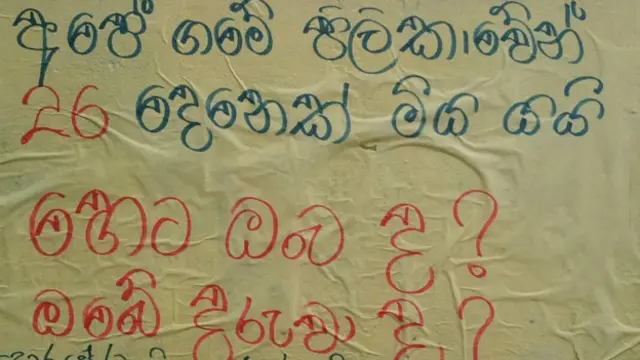 අපේ ගමේ පිළිකාවෙන්
26 දෙනෙක් මිය යයි
හෙට ඔබ ද?
ඔබේ දරුවා ද?